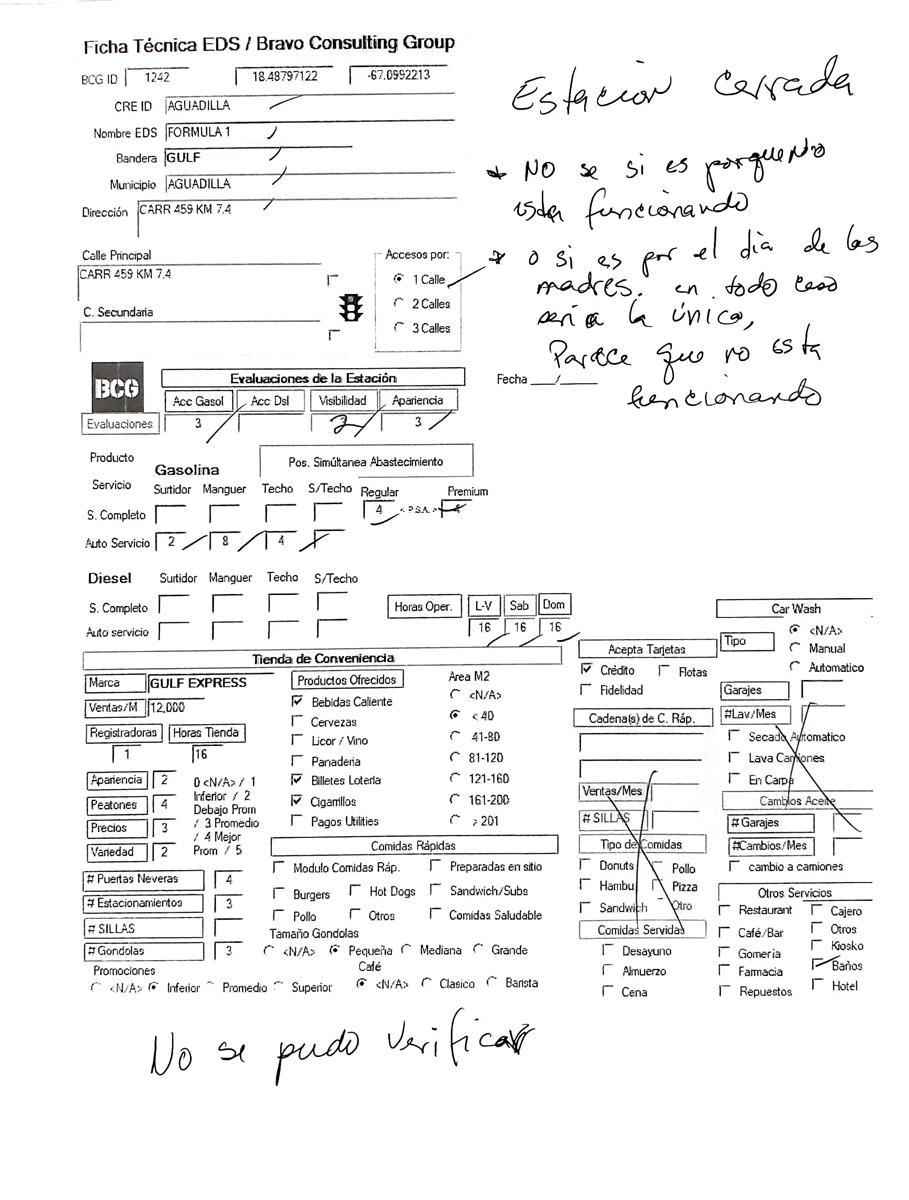 Ficha Técnica EDS / Bravo Consulting Group
BCG ID 1242 18.48797122 -67.0992213
CRE ID AGUADILLA
Nombre EDS FORMULA 1
Bandera GULF
Municipio AGUADILLA
Dirección CARR 459 KM 7.4
Estacion Cerrada
* No se si es porque no
esta funcionando
* o si es por el dia de las
madres. en todo caso
seria la único,
Parece que no esta
funcionando
Calle Principal
CARR 459 KM 7.4
C. Secundaria
Accesos por:
1 Calle
2 Calles
3 Calles
Fecha ___/_____
BCG
Evaluaciones
Evaluaciones de la Estación
Acc Gasol Acc Dsl Visibilidad Apariencia
3 3 3
Producto
Servicio
Gasolina
Pos. Simúltanea Abastecimiento
Surtidor Manguer Techo S/Techo Regular Premium
S. Completo 4 < P.S.A. > 4
Auto Servicio 2 8 4
Diesel Surtidor Manguer Techo S/Techo
S. Completo
Auto servicio
Horas Oper. L-V Sab Dom
16 16 16
Tienda de Conveniencia
Marca GULF EXPRESS
Ventas/M 12,000
Registradoras Horas Tienda
1 16
Apariencia 2
Peatones 4
Precios 3
Variedad 2
0 <N/A> / 1
Inferior / 2
Debajo Prom
/ 3 Promedio
/ 4 Mejor
Prom / 5
# Puertas Neveras 4
# Estacionamientos 3
# SILLAS
# Gondolas 3
Promociones
<N/A> Inferior Promedio Superior
Productos Ofrecidos
Bebidas Caliente
Cervezas
Licor / Vino
Panaderia
Billetes Loteria
Cigarrillos
Pagos Utilities
Area M2
<N/A>
< 40
41-80
81-120
121-160
161-200
> 201
Comidas Rápidas
Modulo Comidas Ráp. Preparadas en sitio
Burgers Hot Dogs Sandwich/Subs
Pollo Otros Comidas Saludable
Tamaño Gondolas
<N/A> Pequeña Mediana Grande
Café
<N/A> Clasico Barista
Acepta Tarjetas
Crédito Flotas
Fidelidad
Cadena(s) de C. Ráp.
Ventas/Mes
# SILLAS
Tipo de Comidas
Donuts Pollo
Hambu Pizza
Sandwich Otro
Comidas Servidas
Desayuno
Almuerzo
Cena
Car Wash
Tipo
<N/A>
Manual
Automatico
Garajes
#Lav/Mes
Secado Automatico
Lava Camiones
En Carpa
Cambios Aceite
# Garajes
#Cambios/Mes
cambio a camiones
Otros Servicios
Restaurant Cajero
Café/Bar Otros
Gomeria Kiosko
Farmacia Baños
Repuestos Hotel
No se pudo verificar